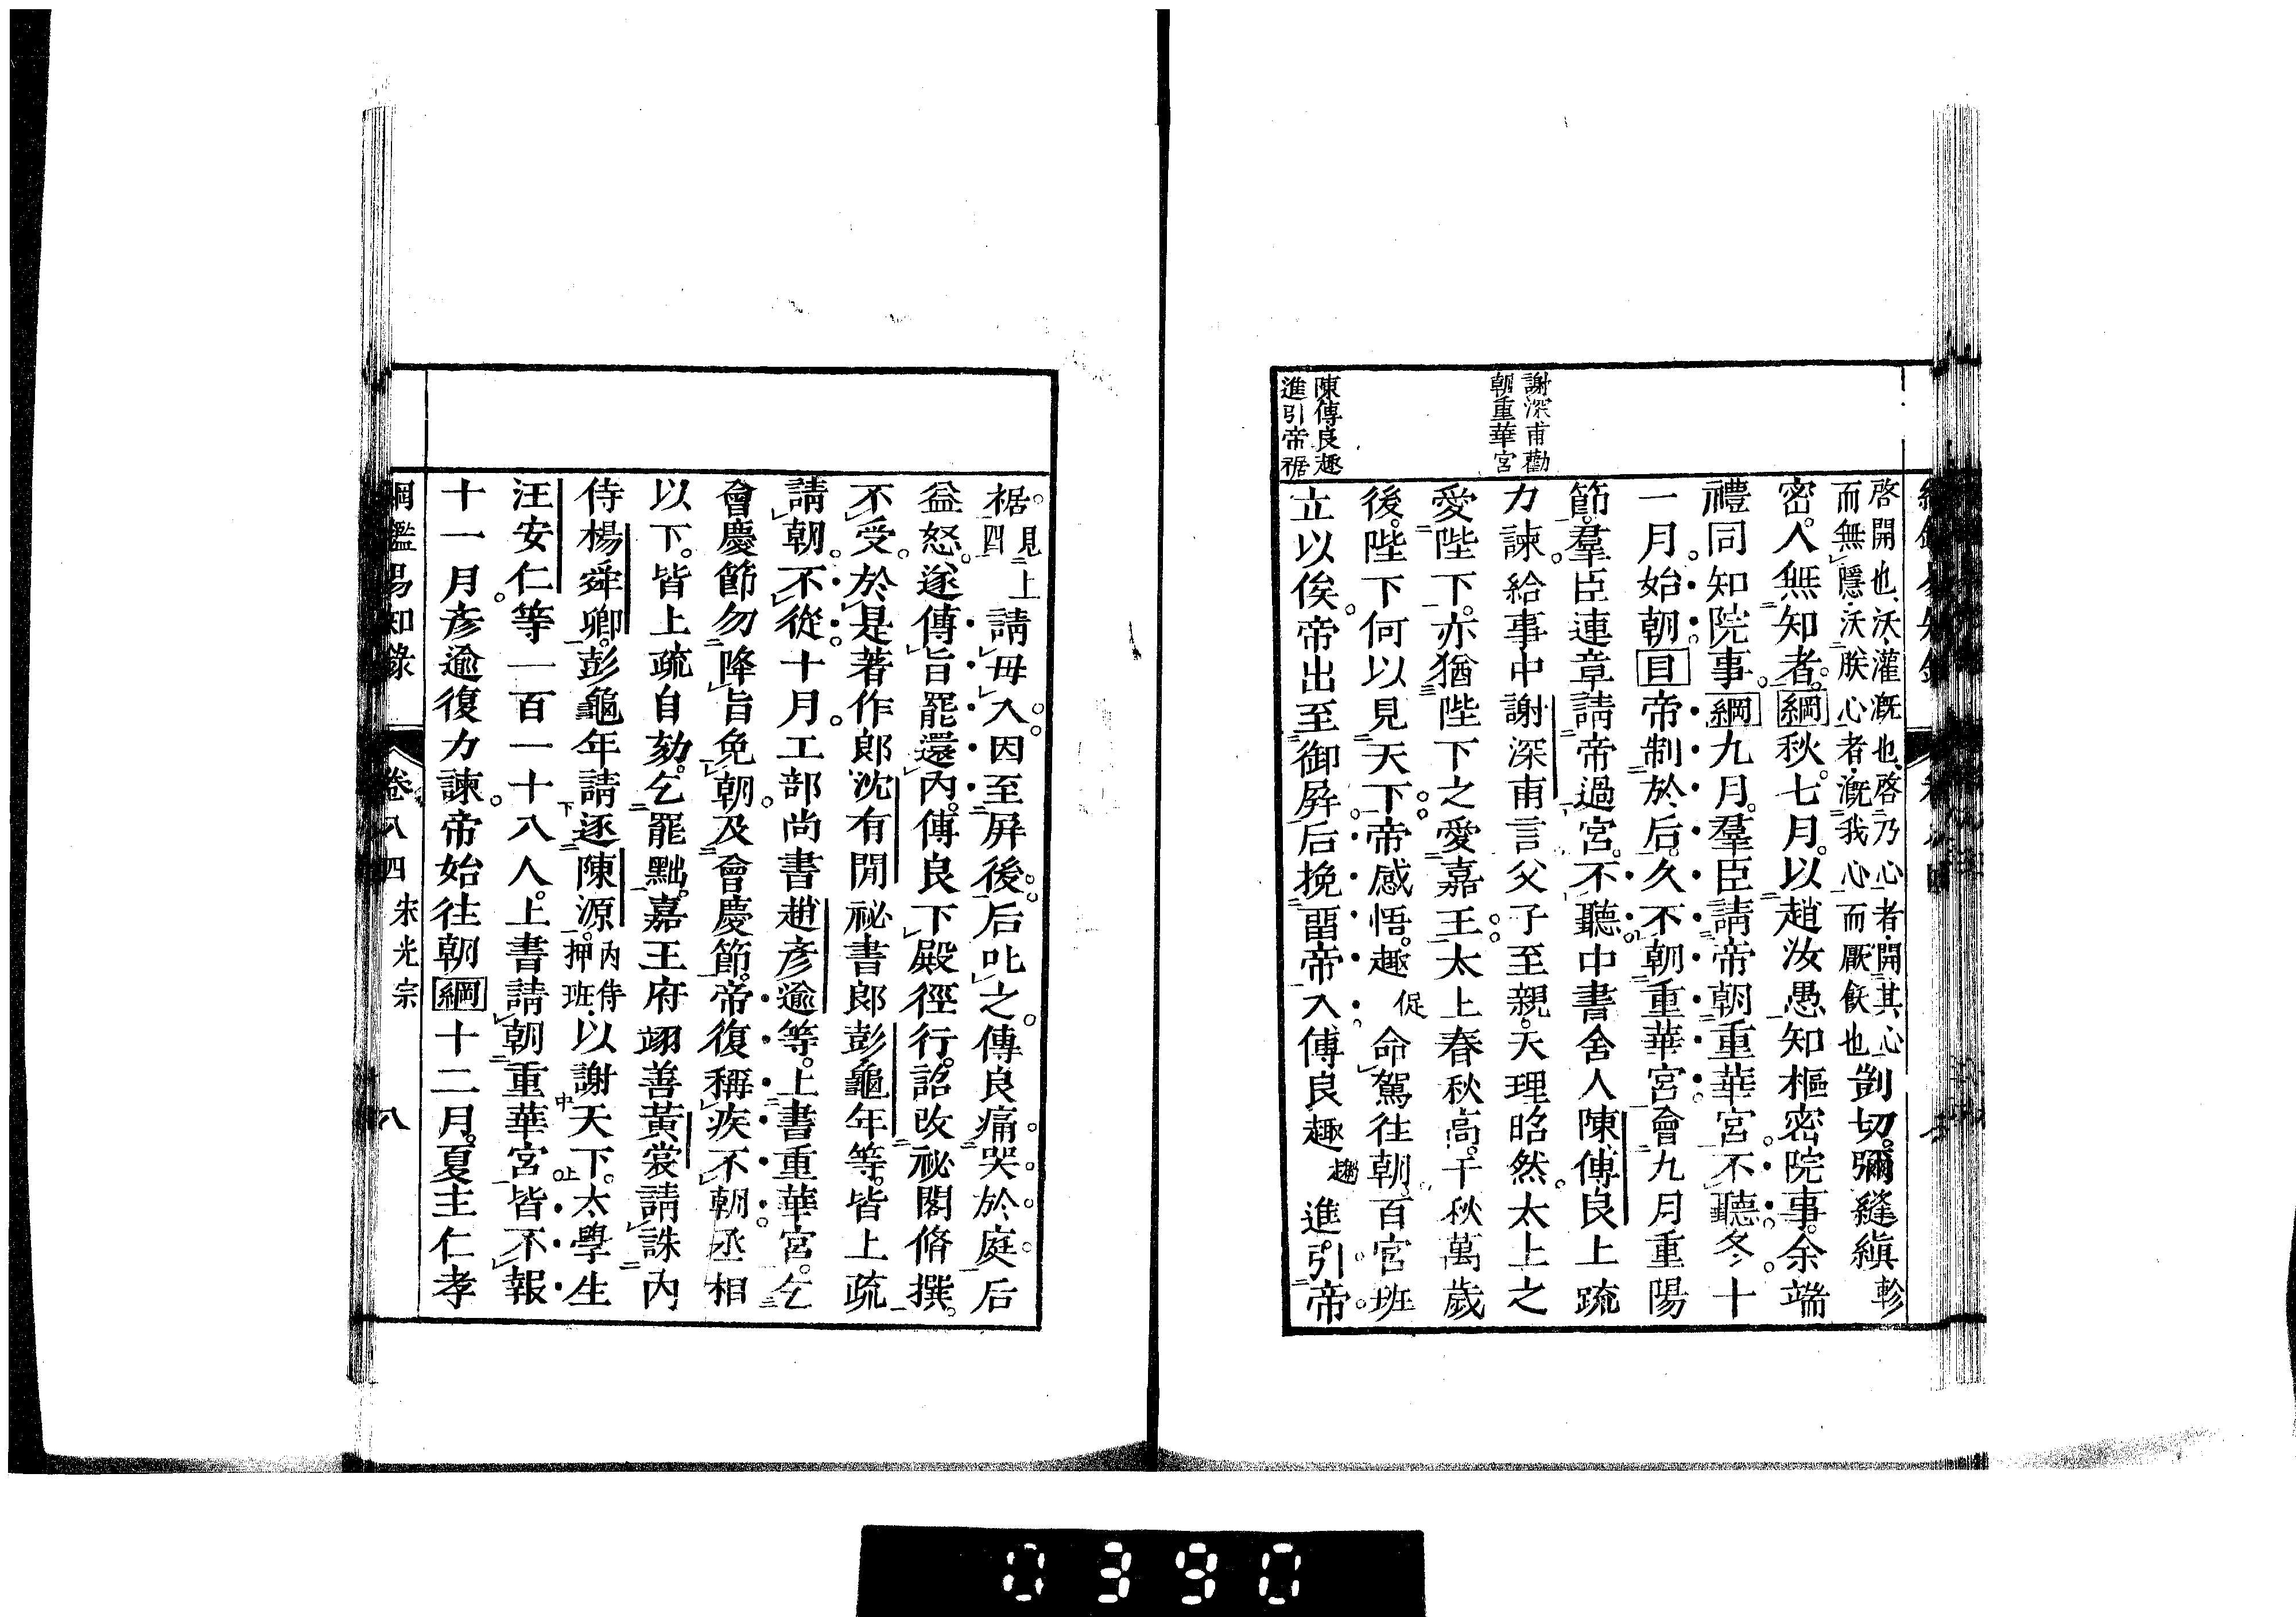 謝深甫勸
朝重華宮
陳傅良趣
進引帝裾
啓開也、沃、灌漑也、啓乃心者、開其心
而無隱、沃朕心者、漑我心而厭飫也
剴切。彌縫縝軫
密。人無知者。綱秋。七月。以趙汝愚知樞密院事。余端
禮同知院事。綱九月。羣臣請帝朝重華宮。不聽。冬、十
一月。始朝。目帝制於后。久不朝重華宮。會九月重陽
節。羣臣連章請帝過宮。不聽。中書舍人陳傅良上疏
力諫。給事中謝深甫言父子至親。天理昭然。太上之
愛陛下。亦猶陛下之愛嘉王。太上春秋高。千秋萬歲
後。陛下何以見天下。帝感悟。趣促命駕往朝。百官班
立以俟。帝出至御屏。后挽畱帝入。傅良趣趨進。引帝
裾。見上四請毋入。因至屏後。后叱之。傅良痛哭於庭。后
益怒。遂傳旨罷還內。傅良下殿徑行。詔改祕閣脩撰。
不受。於是著作郎沈有開祕書郎彭龜年等。皆上疏
請朝。不從。十月。工部尚書趙彥逾等。上書重華宮。乞
會慶節勿降旨免朝。及會慶節。帝復稱疾不朝。丞相
以下。皆上疏自劾。乞罷黜。嘉王府翊善黃裳請誅內
侍楊舜卿。彭龜年請逐陳源。內侍押班。以謝天下。太學生
汪安仁等一百一十八人。上書請朝重華宮。皆不報
十一月。彥逾復力諫。帝始往朝綱十二月。夏主仁孝
綱鑑易知錄 卷八四 宋光宗 八